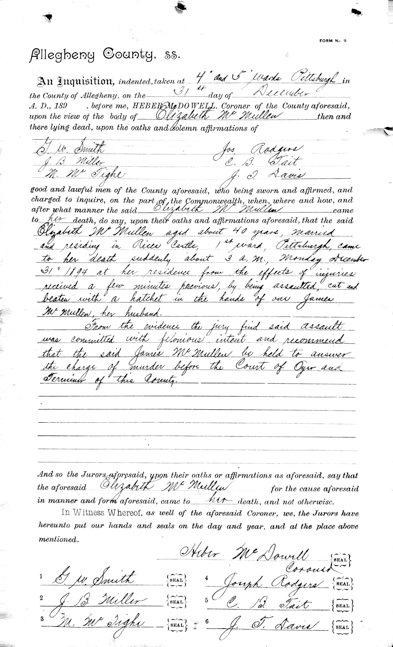 FORM No. 9
Allegheny County, SS.
An Inquisition, indented, taken at 4th and 5th Wards Pittsburgh in
the County of Allegheny, on the 31st day of December
A. D., 189 , before me, HEBER McDOWELL, Coroner of the County aforesaid,
upon the view of the body of Elizabeth McMullen then and
there lying dead, upon the oaths and solemn affirmations of
G. W. Smith Jos Rodgers
J B Miller C. B. Tait
M. McTighe J. T Davis
good and lawful men of the County aforesaid, who being sworn and affirmed, and
charged to inquire, on the part of the Commonwealth, when, where and how, and
after what manner the said Elizabeth McMullen came
to her death, do say, upon their oaths and affirmations aforesaid, that the said
Elizabeth McMullen aged about 40 years, married
and residing in Rices Castle, 1st ward, Pittsburgh, came
to her death suddenly about 3 a.m, Monday December
31st 1894 at her residence from the effects of injuries
received a few minutes previous, by being assaulted, cut and
beaten with a hatchet in the hands of one James
McMullen, her husband.
From the evidence the jury find said assault
was committed with felonious intent and recommend
that the said James McMullen be held to answer
the charge of murder before the Court of Oyer and
Terminer of this County.
And so the Jurors aforesaid, upon their oaths or affirmations as aforesaid, say that
the aforesaid Elizabeth McMullen for the cause aforesaid
in manner and form aforesaid, came to her death, and not otherwise.
In Witness Whereof, as well of the aforesaid Coroner, we, the Jurors have
hereunto put our hands and seals on the day and year, and at the place above
mentioned.
Heber McDowell SEAL
Coroner
1 G. W. Smith SEAL 4 Joseph Rodgers SEAL
2 J. B Miller SEAL 5 C. B Tait SEAL
3 M. McTighe SEAL 6 J. T. Davis SEAL